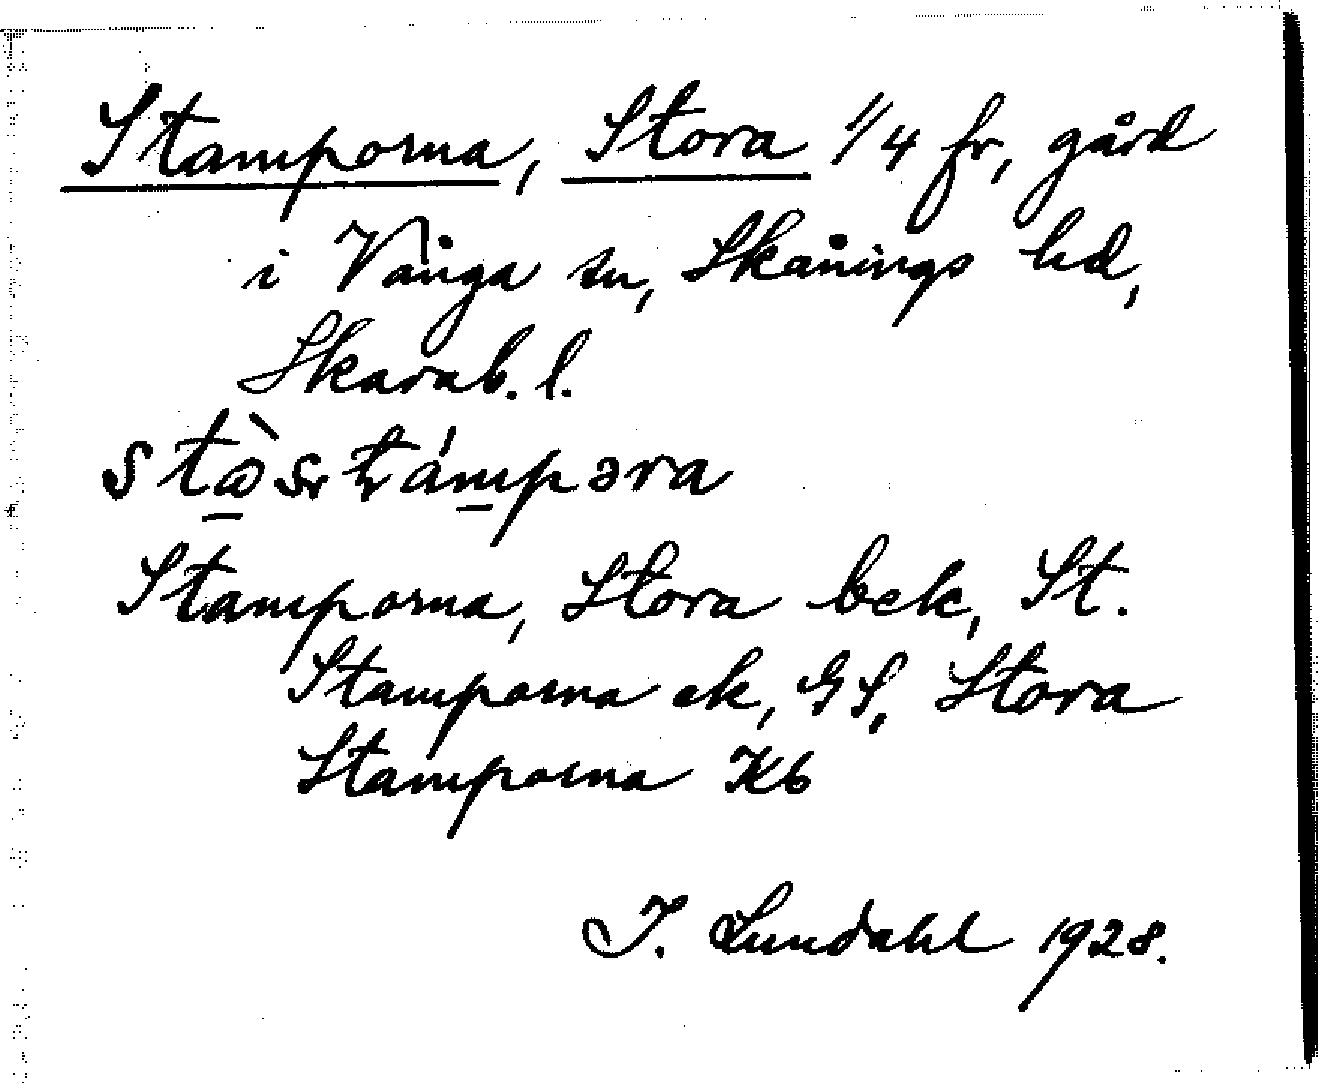 Stamporna, Stora 1/4 fr, gård
i Vånga sn, Skånings hd,
Skarab. l.
Stamporna, Stora bek, St.
Stamporna ek, GS, Stora
Stamporna Kb
I. Lundahl 1928.